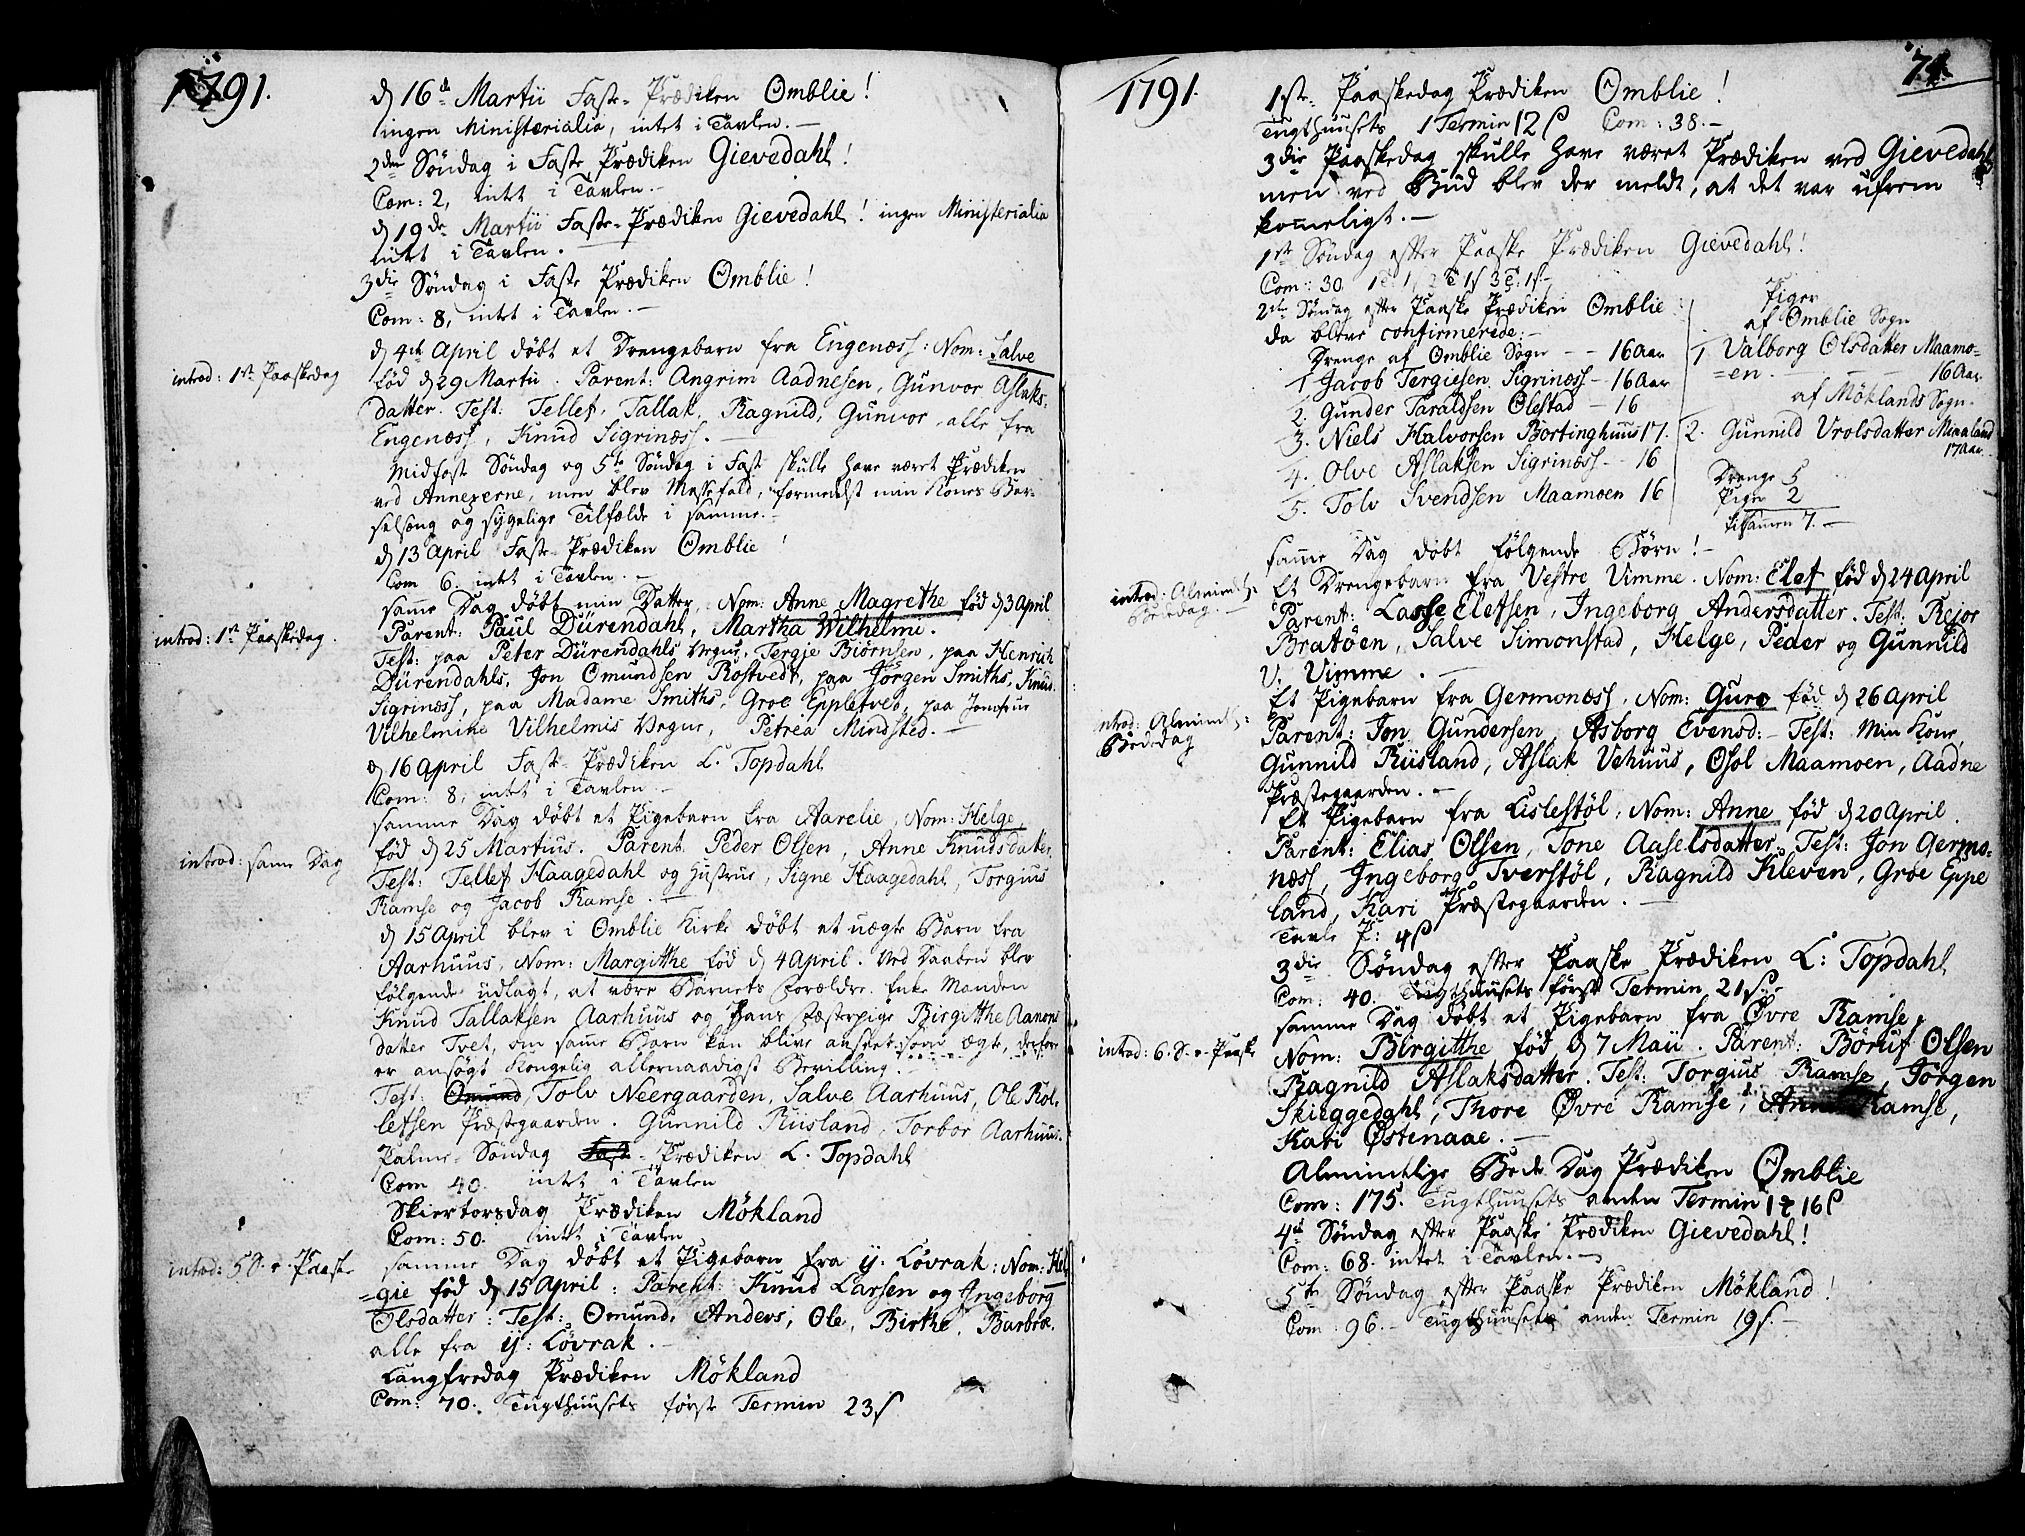 1791.
d 16de Martii Faste-Prædiken Omblie!
ingen Ministerialia, intet i Tavlen.
2den Søndag i Faste Prædiken Gievedahl!
Com: 2, intet i Tavlen.
d 19de Martii Faste-Prædiken Gievedahl! ingen Ministerialia
intet i Tavlen.
3die Søndag i Faste Prædiken Omblie!
Com: 8, intet i Tavlen.
d 4de April døbt et Drengebarn fra Engenæss: Nom: Salve
introd: 1ste Paaskedag
fød d 29 Martii. Parent: Angrim Aadnesen, Gunvor Aslaks-
datter. Test: Tellef, Tallak, Ragnild, Gunvor, alle fra
Engenæss, Knud Sigrinæss.
Midfast Søndag og 5te Søndag i Fast skulle have været Prædiken
ved Annexerne, men blev Messefald, formedelst min Kones Bar-
selseng og sygelige Tilfælde i samme.
d 13 April Faste-Prædiken Omblie!
Com 6. intet i Tavlen.
samme Dag døbt min Datter, Nom: Anne Magrethe fød d 3 April
introd: 1ste Paaskedag.
Parent: Paul Dürendahl, Martha Wilhelmi.
Test: paa Peter Dürendahls Vegne, Tergie Biørnsen, paa Henrich
Dürendahls, Jon Omundsen Rostvedt, paa Jørgen Smiths, Knud
Sigrinæss, paa Madame Smiths, Groe Eppletvet, paa Jomfrue
Vilhelmine Vilhelmis Vegne, Petrea Mindsted.
d 16 April Faste-Prædiken L. Topdahl
Com: 8, intet i Tavlen
samme Dag døbt et Pigebarn fra Aarelie, Nom: Helge,
introd: samme Dag
fød d 25 Martius. Parent. Peder Olsen, Anne Knudsdatter.
Test: Tellef Haagedahl og Hustrue, Signe Haagedahl, Torgius
Ramse og Jacob Ramse.
d 15 April blev i Omblie Kirke døbt et uægte Barn fra
Aarhuus, Nom: Margithe fød d 4 April. Ved Daaben blev
følgende udlagt, at være Barnets Forældre. Enke Manden
Knud Tallaksen Aarhuus og Hans Fæstepige Birgitthe Aanons
datter Tvet, om samme Barn kan blive anseet som ægte, derfore
er ansøgt Kongelig allernaadigst Bevilling.
Test: Omund, Tolv Neergaarden, Salve Aarhuus, Ole Rol-
lefsen Præstegaarden. Gunnild Riisland, Torbor Aarhuus.
Palme-Søndag Fast-Prædiken L. Topdahl
Com 40. intet i Tavlen
Skiertorsdag Prædiken Møkland
Com: 50. intet i Tavlen
introd: 5 S. e. Paaske
samme Dag døbt et Pigebarn fra y. Løvrak: Nom: Hel
=gie fød d 15 April: Parent: Knud Larsen og Ingeborg
Olsdatter: Test: Omund, Anders, Ole, Birthe, Barbroe.
alle fra y: Løvrak.
Langfredag Prædiken Møkland
Com: 70. Tugthuusets første Termin 23 s
1791.
74.
1ste Paaskedag Prædiken Omblie!
Tugthuusets 1 Termin 12 s Com: 38.
3die Paaskedag skulle have været Prædiken ved Gievedahl
men ved Bud blev der meldt, at det var ufrem
kommeligt.
1ste Søndag efter Paaske Prædiken Gievedahl!
Com: 30.
2den Søndag efter Paaske Prædiken Omblie
da bleve confirmerede.
Drenge af Omblie Sogn - - 16 Aar
1. Jacob Tergiesen Sigrinæss - 16 Aar
2. Gunder Taraldsen Ølestad - 16
3. Niels Halvorsen Bortinghuus 17.
4. Olve Aslaksen Sigrinæss - 16
5. Tolv Svendsen Maamoen 16
Piger
af Omblie Sogn
1. Valborg Olsdatter Maamo-
=en. 16 Aar
af Møklands Sogn.
2. Gunnild Vrolsdatter Miaaland
17 Aar.
Drenge 5
Piger 2
tilsamen 7.
samme Dag døbt følgende Børn!
introd: Almindel:
Bededag.
Et Drengebarn fra Vestre Vimme. Nom: Elef fød d 24 April
Parent: Lasse Elefsen, Ingeborg Andersdatter. Test: Rejor
Bratøen, Salve Simonstad, Helge, Peder og Gunnild
V. Vimme.
introd: Almindel:
Bededag
Et Pigebarn fra Germonæss, Nom: Guro fød d 26 April
Parent: Jon Gundersen, Asborg Evensd: Test: Min Kone,
Gunnild Riisland, Aslak Vehuus, Osol Maamoen, Aadne
Præstegaarden.
Et Pigebarn fra Lislestøl, Nom: Anne fød d 20 April.
Parent: Elias Olsen, Tone Aaselsdatter. Test: Jon Germo-
næss, Ingeborg Tverstøl, Ragnild Kleven, Groe Eppe
land, Kari Præstegaarden.
Tavle P: 4 s
3die Søndag efter Paaske Prædiken L: Topdahl
Com: 40. Tugthuusets første Termin 21 s.
samme Dag døbt et Pigebarn fra Øvre Ramse,
introd: 6. S. e. Paaske
Nom: Birgitthe fød d 7 Maii. Parent: Børuf Olsen
Ragnild Aslaksdatter. Test: Torgius Ramse, Jørgen
Skieggedahl, Thore Øvre Ramse, Anne Ramse,
Kari Østenaae.
Almindelige Bede Dag Prædiken Omblie
Com: 175. Tugthuusets anden Termin 16 s
4de Søndag efter Paaske Prædiken Gievedahl!
Com: 68. intet i Tavlen.
5te Søndag efter Paaske Prædiken Møkland!
Com: 96. - Tugthuusets anden Termin 19 s.